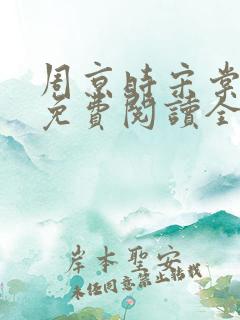 周京時宋棠
免費閱讀全
岸本聖安
未任同意禁止转载